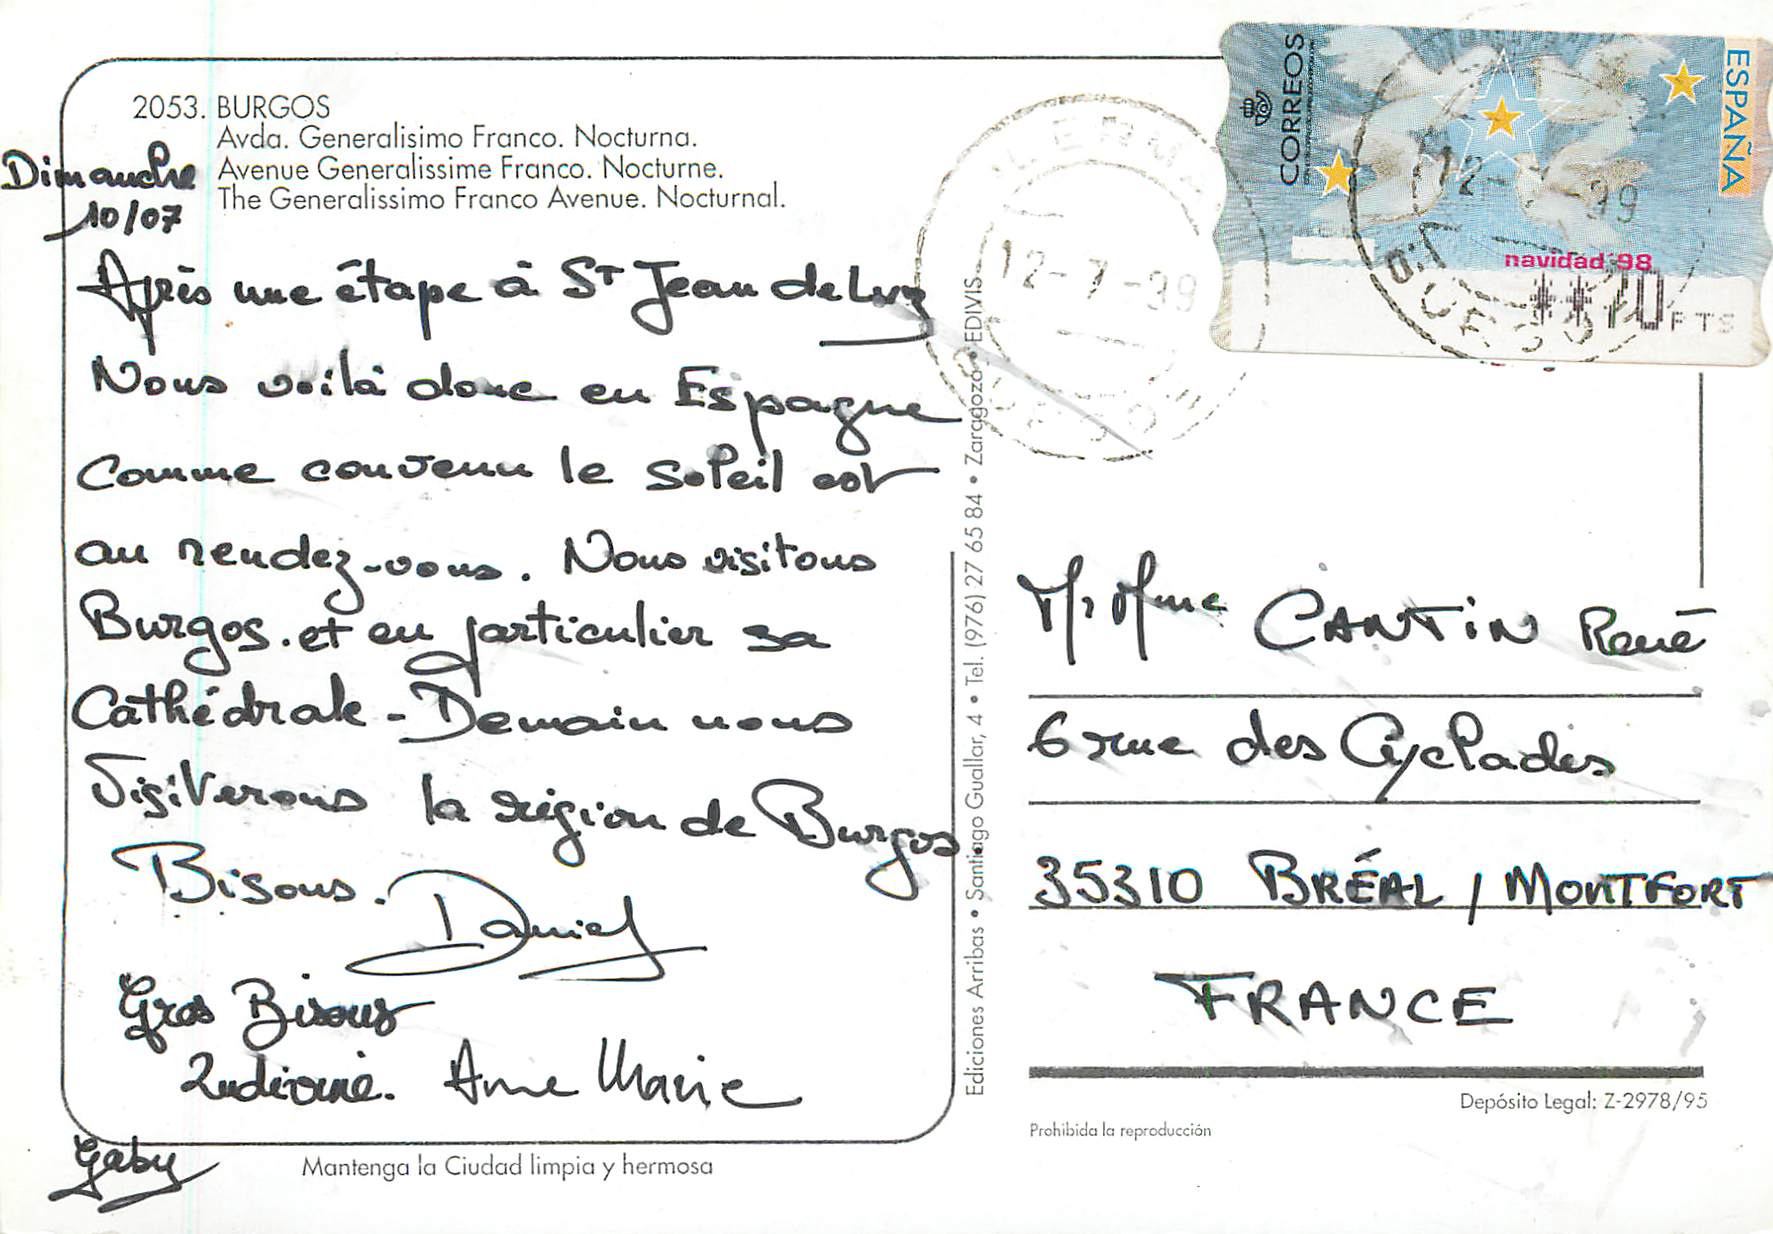 2053. BURGOS
Avda. Generalisimo Franco. Nocturna.
Avenue Generalissime Franco. Nocturne.
The Generalissimo Franco Avenue. Nocturnal.
Dimanche
10/07
Après une étape à St Jean de Luz
Nous voilà donc en Espagne
Comme convenu le soleil est
au rendez-vous. Nous visitons
Burgos. et en particulier sa
Cathédrale - Demain nous
Visiterons la région de Burgos.
Bisous. Daniel
Gros Bisous
Ludivine. Anne Marie
Gaby
Mantenga la Ciudad limpia y hermosa
Ediciones Arribas • Santiago Guallar, 4 • Tel. (976) 27 65 84 • Zaragoza • EDIVIS
CORREOS
ESPAÑA
navidad 98
**70 PTS
LERMA
12-7-99
BURGOS
12- -99
BURGOS
Mr Mme CANTIN René
6 rue des Cyclades
35310 BRÉAL / MONTFORT
FRANCE
Depósito Legal: Z-2978/95
Prohibida la reproducción